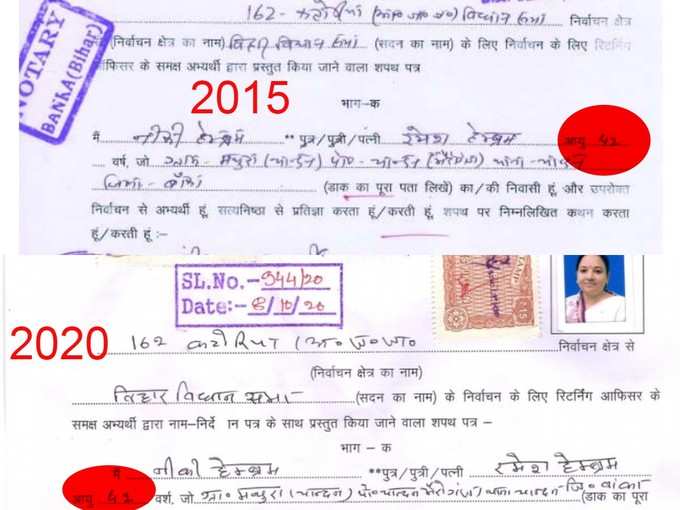 162- कटोरिया (अ० ज० जा०) विधान सभा निर्वाचन क्षेत्र
NOTARY
BANKA (Bihar)
(निर्वाचन क्षेत्र का नाम) बिहार विधान सभा (सदन का नाम) के लिए निर्वाचन के लिए रिटर्निंग
ऑफिसर के समक्ष अभ्यर्थी द्वारा प्रस्तुत किया जाने वाला शपथ पत्र
2015
भाग-क
मैं निक्की हेम्ब्रम **पुत्र/पुत्री/पत्नी रमेश हेम्ब्रम आयु 42
वर्ष, जो
जिला - बाँका (डाक का पूरा पता लिखें) का/की निवासी हूं और उपरोक्त
निर्वाचन से अभ्यर्थी हूं, सत्यनिष्ठा से प्रतिज्ञा करता हूं/करती हूं, शपथ पर निम्नलिखित कथन करता
हूं/करती हूं :–
SL.No.-944/20
Date:-8/10/20
2020
162 कटोरिया (अ० ज० जा० निर्वाचन क्षेत्र से
(निर्वाचन क्षेत्र का नाम)
बिहार विधान सभा (सदन का नाम) के निर्वाचन के लिए रिटर्निंग आफिसर के
समक्ष अभ्यर्थी द्वारा नाम-निर्दे ान पत्र के साथ प्रस्तुत किया जाने वाला शपथ पत्र –
भाग – क
मैं नीकी हेम्ब्रम **पुत्र/पुत्री/पत्नी रमेश हेम्ब्रम
आयु 42 वर्श, जो जि० बांका (डाक का पूरा